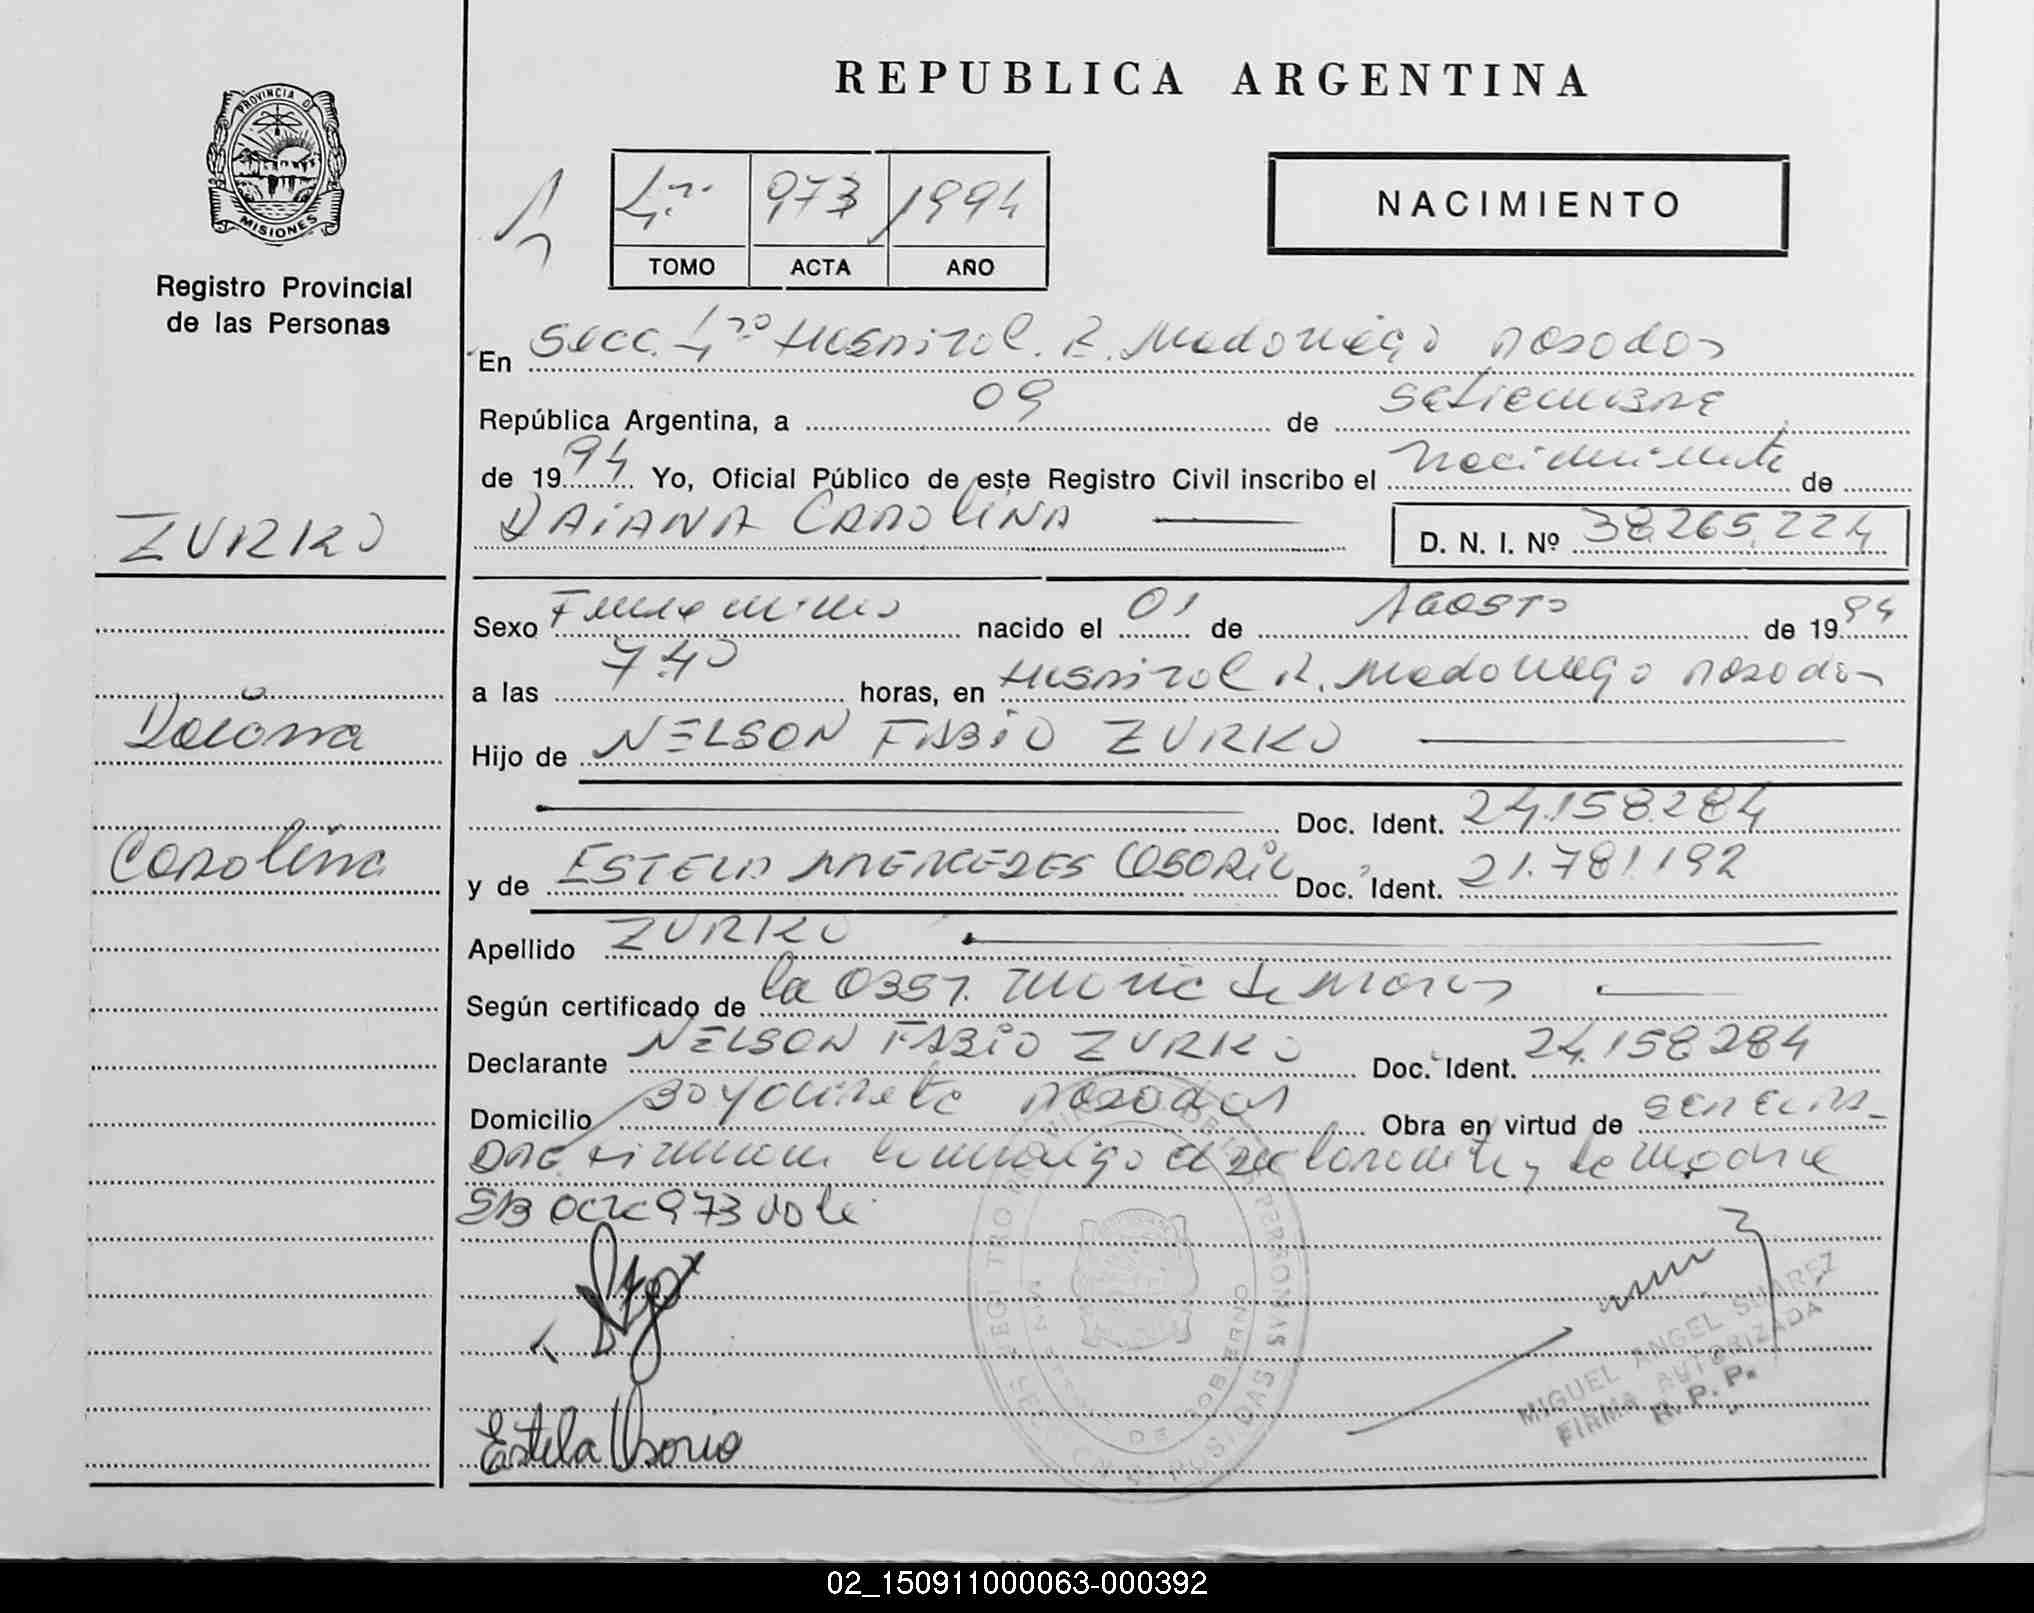 REPUBLICA ARGENTINA
PROVINCIA DE
MISIONES
Registro Provincial
de las Personas
4º 973 1994
TOMO ACTA AÑO
NACIMIENTO
En Secc. 4º Hospital R. Madariaga Posadas
República Argentina, a 09 de Setiembre
de 1994 Yo, Oficial Público de este Registro Civil inscribo el Nacimiento de
DAIANA CAROLINA
D. N. I. Nº 38.265.224
ZURKO
Daiana
Carolina
Sexo Femenino nacido el 01 de Agosto de 1994
a las 7.40 horas, en Hospital R. Madariaga Posadas
Hijo de NELSON FABIO ZURKO
Doc. Ident. 24.158.284
y de ESTELA MERCEDES OSORIO Doc. Ident. 21.781.192
Apellido ZURKO
Según certificado de la Obst. de
Declarante NELSON FABIO ZURKO Doc. Ident. 24.158.284
Domicilio Posadas Obra en virtud de
conmigo el declarante y la madre
S/B acta 973 vale
Estela Osorio
REGISTRO PROVINCIAL DE LAS PERSONAS
MINISTERIO DE GOBIERNO
POSADAS
MIGUEL ANGEL SUAREZ
FIRMA AUTORIZADA
R. P. P.
02_150911000063-000392